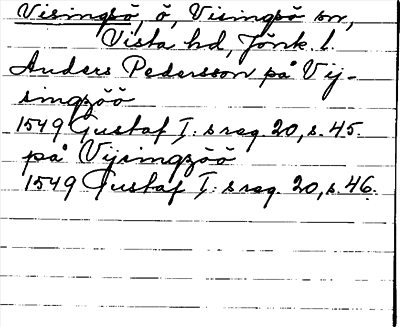 Visingsö, ö, Visingsö sn,
Vista hd, Jönk. l.
Anders Pedersson på Vij-
singzöö
1549 Gustaf I: s reg. 20, s. 45.
på Vijsingzöö
1549 Gustaf I: s reg. 20, s. 46.